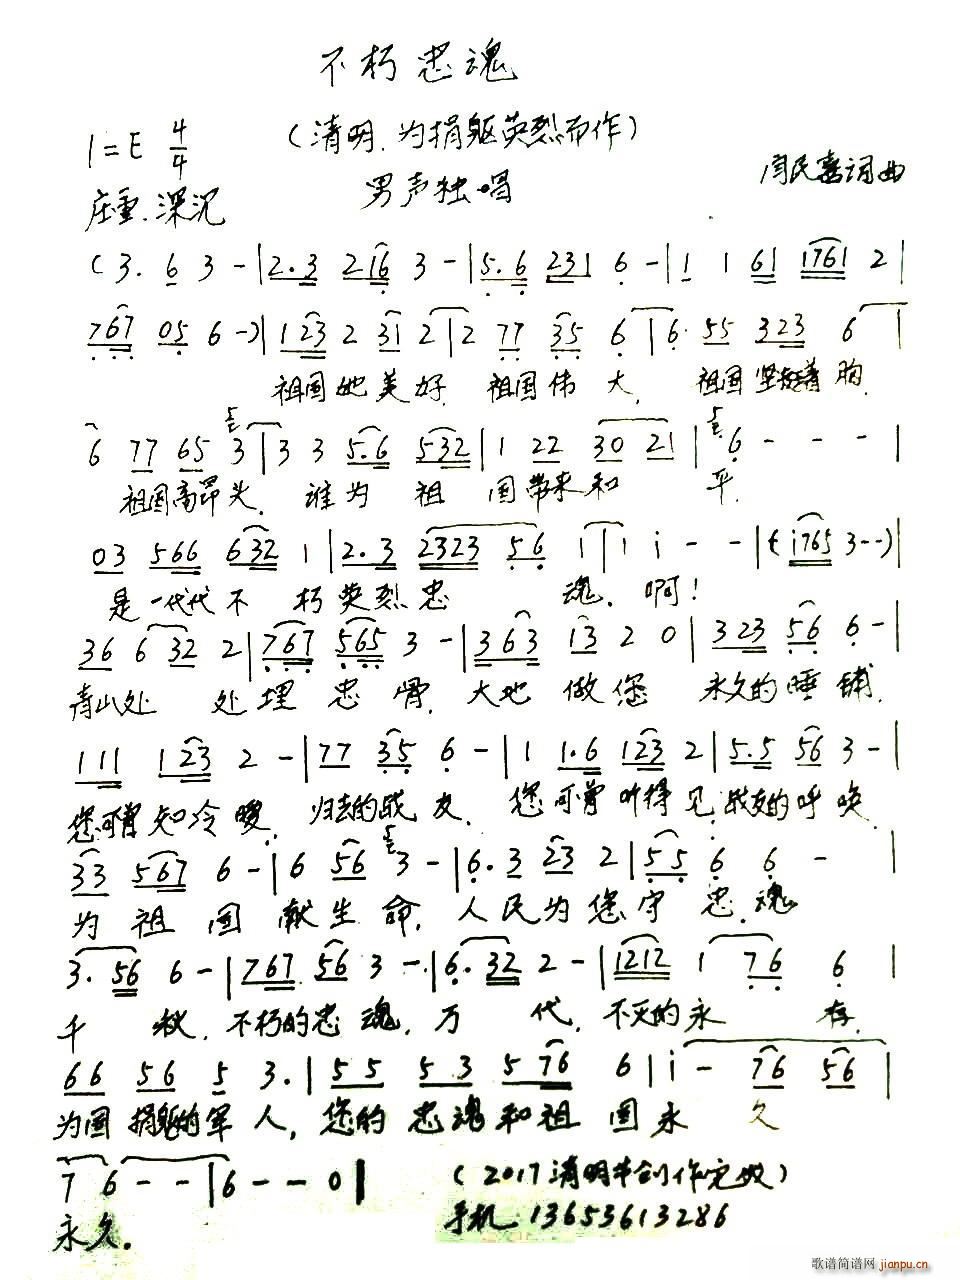 不朽忠魂
(清明.为捐躯英烈而作)
1=E 4/4
男声独唱
闫民喜词曲
庄重.深沉
(3. 6 3 - | 2.3 216 3 - | 5.6 231 6 - | 1 1 61 1761 2 |
767 05 6 -) | 123 2 31 2 | 2 77 35 6 | 6. 55 323 6 |
祖国她美好 祖国伟大, 祖国坚挺着胸
6 77 65 3 | 3 3 5.6 532 | 1 22 30 21 | 6 - - - |
祖国高昂头. 谁为祖国带来和平.
03 566 632 1 | 2.3 2323 56 i | i i - - | (i765 3 - -) |
是一代代不朽英烈忠魂. 啊!
36 6 32 2 | 767 565 3 - | 363 13 2 0 | 323 56 6 - |
青山处处埋忠骨. 大地做您永久的睡铺.
111 123 2 - | 77 35 6 - | 1 1.6 123 2 | 5.5 56 3 - |
您可曾知冷暖. 归去的战友. 您可曾听得见战友的呼唤.
33 567 6 - | 6 56 3 - | 6.3 23 2 | 55 6 6 - |
为祖国献生命, 人民为您守忠魂
3.56 6 - | 767 56 3 - | 6.32 2 - | 1212 1 76 6 |
千秋, 不朽的忠魂, 万代, 不灭的永存.
66 56 5 3. | 55 53 576 6 | i - 76 56 |
为国捐躯的军人, 您的忠魂和祖国永久
7 6 - - | 6 - - 0 |
永久.
(2017清明节创作完毕)
手机 13653613286
歌谱简谱网
jianpu.cn